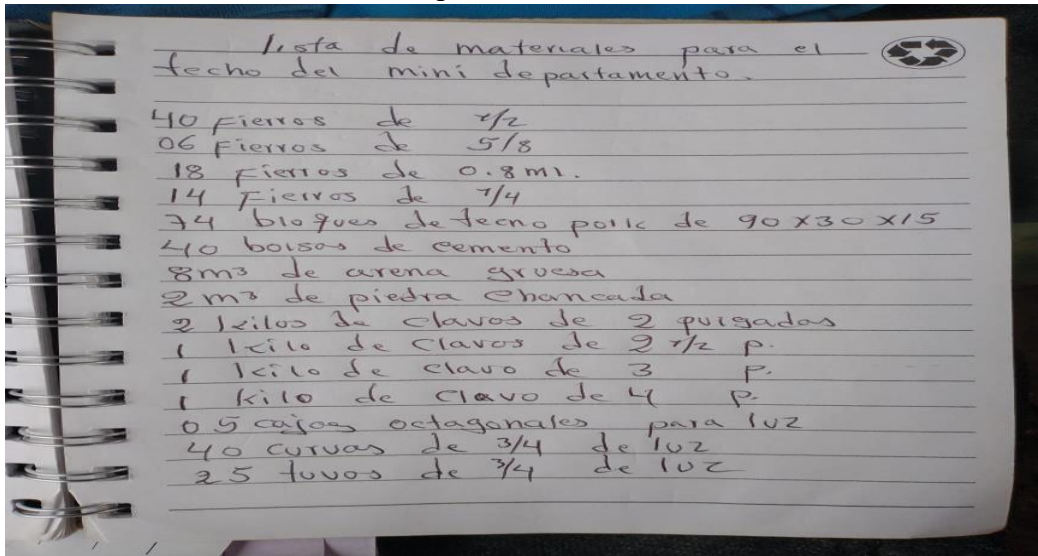 lista de materiales para el
techo del mini departamento.
40 Fierros de 1/2
06 Fierros de 5/8
18 Fierros de 0.8 ml.
14 Fierros de 1/4
74 bloques de tecno polk de 90x30x15
40 bolsas de cemento
8m3 de arena gruesa
2 m3 de piedra chancada
2 kilos de clavos de 2 pulgadas
1 kilo de clavos de 2 1/2 p.
1 kilo de clavo de 3 p.
1 kilo de clavo de 4 p.
05 cajas octagonales para luz
40 curvas de 3/4 de luz
25 tuvos de 3/4 de luz